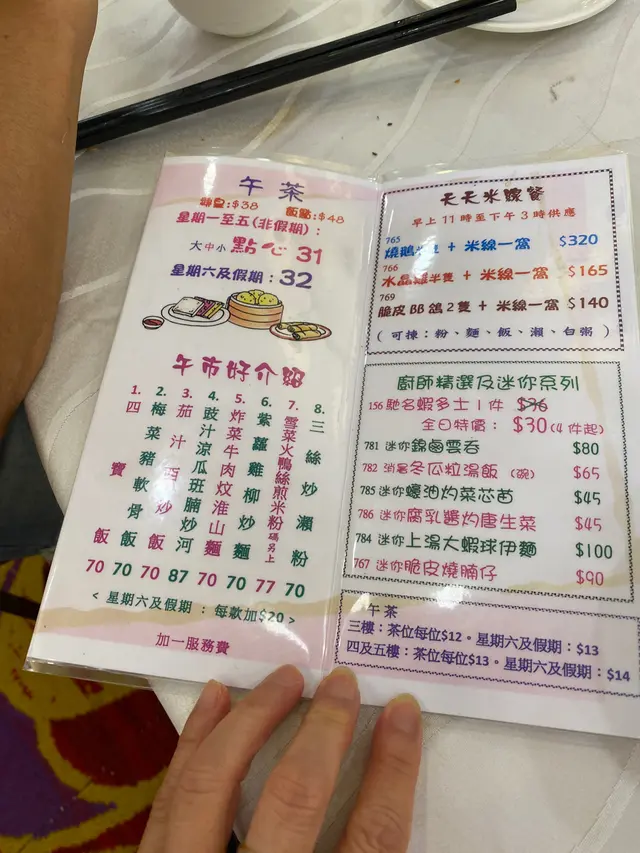 午茶
錦皇:$38 飯點:$48
星期一至五(非假期):
大中小 點心 31
星期六及假期:32
午市好介紹
1. 四寶飯 70
2. 梅菜豬軟骨飯 70
3. 茄汁百炒飯 70
4. 豉汁涼瓜班腩炒河 87
5. 炸菜牛肉炆淮山麵 70
6. 紫蘿雞柳炒麵 70
7. 雪菜火鴨絲煎米粉 碼另上 77
8. 三絲炒瀨粉 70
< 星期六及假期:每款加$20 >
加一服務費
天天米線餐
早上11時至下午3時供應
765
燒鵝半隻 + 米線一窩 $320
766
水晶雞半隻 + 米線一窩 $165
769
脆皮BB鴿2隻 + 米線一窩 $140
(可揀:粉、麵、飯、瀨、白粥)
廚師精選及迷你系列
156 馳名蝦多士1件 $36
全日特價: $30(4件起)
781 迷你錦鹵雲吞 $80
782 消暑冬瓜粒湯飯 (碗) $65
785 迷你蠔油灼菜芯苗 $45
786 迷你腐乳醬灼唐生菜 $45
784 迷你上湯大蝦球伊麵 $100
767 迷你脆皮燒腩仔 $90
午茶
三樓:茶位每位$12。星期六及假期:$13
四及五樓:茶位每位$13。星期六及假期:$14